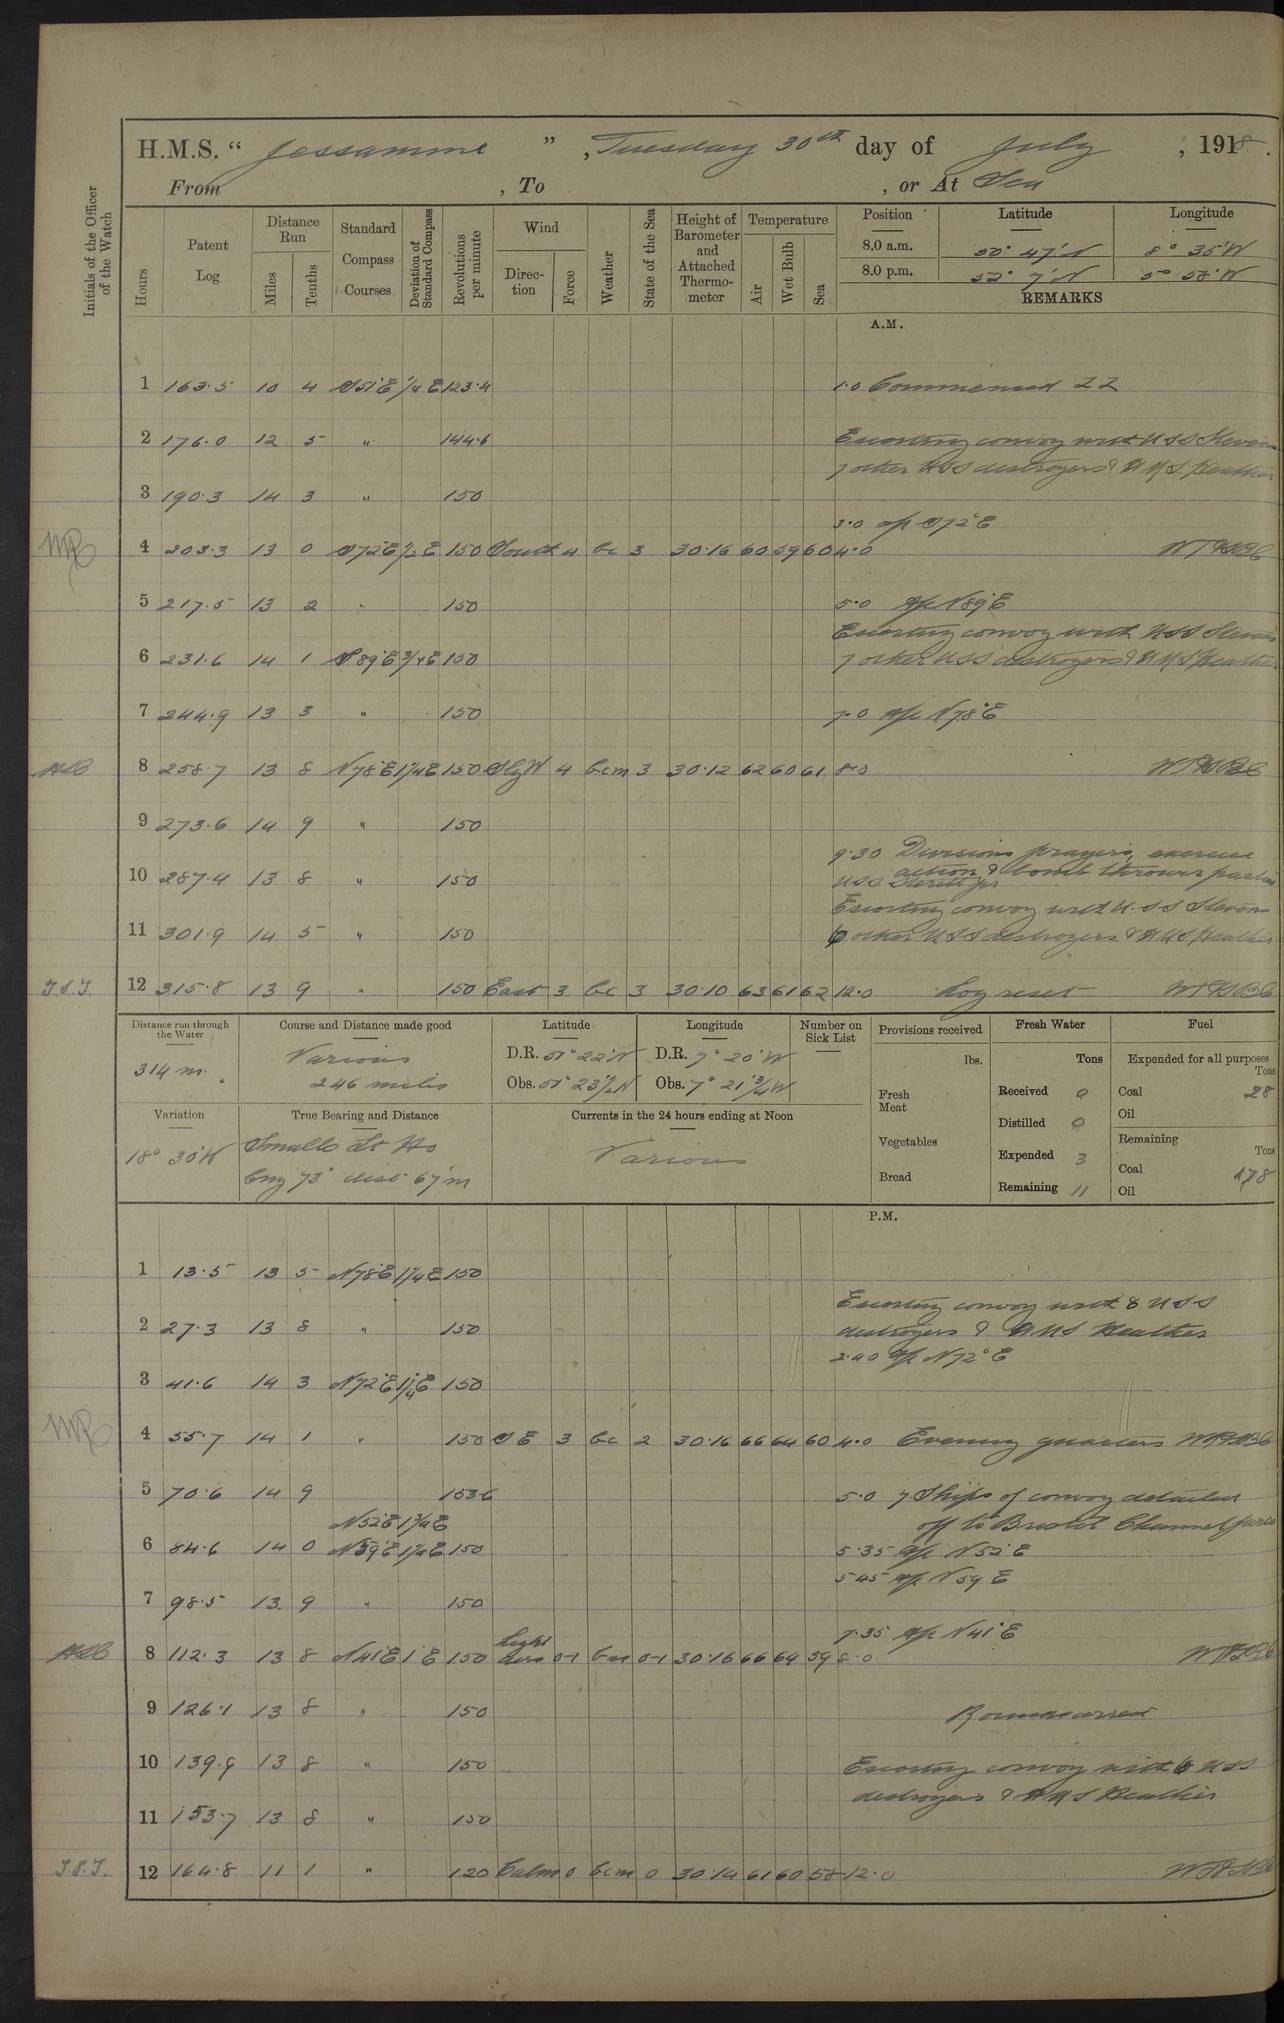 H.M.S. “ Jessamine ” , Tuesday 30th day of July , 1918 .
From , To , or At Sea
Initials of the Officer of the Watch
Hours
Patent Log
Distance Run
Miles
Tenths
Standard Compass Courses
Deviation of Standard Compass
Revolutions per minute
Wind
Direction
Force
Weather
State of the Sea
Height of Barometer and Attached Thermometer
Temperature
Air
Wet Bulb
Sea
Position Latitude Longitude
8.0 a.m. 50° 47' N 8° 35' W
8.0 p.m. 52° 7' N 5° 58' W
REMARKS
A.M.
1 163.5 10 4 S51°E 1/4 E 123.4 1.0 Commenced ZZ
2 176.0 12 5 " 144.6 Escorting convoy with USS Stevens
7 other USS destroyers & HMS Heather
3 190.3 14 3 " 150
3.0 a/c S72°E
4 203.3 13 0 S72°E 1/2 E 150 South 4 bc 3 30.16 60 59 60 4.0
5 217.5 13 2 " 150 5.0 a/c N89°E
Escorting convoy with USS Stevens
6 231.6 14 1 S89°E 3/4 E 150 7 other USS destroyers & HMS Heather
7 244.9 13 3 " 150 7.0 a/c N78°E
8 258.7 13 8 N78°E 1 1/4 E 150 SbyW 4 bcm 3 30.12 62 60 61 8.0
9 273.6 14 9 " 150
9.30 Divisions prayers, exercise
action & bomb thrower parties
10 287.4 13 8 " 150 USS
Escorting convoy with U.S.S Stevens
11 301.9 14 5 " 150 6 other USS destroyers & HMS Heather
T.S.T. 12 315.8 13 9 " 150 East 3 bc 3 30.10 63 61 62 12.0 Log reset
Distance run through the Water
314 m.
Course and Distance made good
Various
246 miles
Latitude
D.R. 51° 22' N
Obs. 51° 23 1/2' N
Longitude
D.R. 7° 20' W
Obs. 7° 21 3/4' W
Number on Sick List
Provisions received
lbs.
Fresh Meat
Vegetables
Bread
Fresh Water
Tons
Received 0
Distilled 0
Expended 3
Remaining 11
Fuel
Expended for all purposes
Tons
Coal 28
Oil
Remaining
Tons
Coal 178
Oil
Variation
18° 30' W
True Bearing and Distance
Smalls Lt Ho
brg 73° dist 67 m
Currents in the 24 hours ending at Noon
Various
P.M.
1 13.5 13 5 N78°E 1 1/4 E 150
Escorting convoy with 8 USS
2 27.3 13 8 " 150 destroyers & HMS Heather
2.40 a/c N72°E
3 41.6 14 3 N72°E 1 1/4 E 150
4 55.7 14 1 " 150 SE 3 bc 2 30.16 66 64 60 4.0 Evening quarters
5 70.6 14 9 153.6 5.0 7 Ships of convoy detailed
N52°E 1 3/4 E off to Bristol Channel ports
6 84.6 14 0 N59°E 1 1/4 E 150 5.35 a/c N52°E
5.45 a/c N59E
7 98.5 13 9 " 150
7.35 a/c N41°E
8 112.3 13 8 N41°E 1°E 150 Light airs 0-1 bm 0-1 30.16 66 64 59 8.0
9 126.1 13 8 " 150 Rounds correct
10 139.9 13 8 " 150 Escorting convoy with 6 USS
destroyers & HMS Heather
11 153.7 13 8 " 150
T.S.T. 12 164.8 11 1 " 120 Calm 0 bcm 0 30.14 61 60 58 12.0